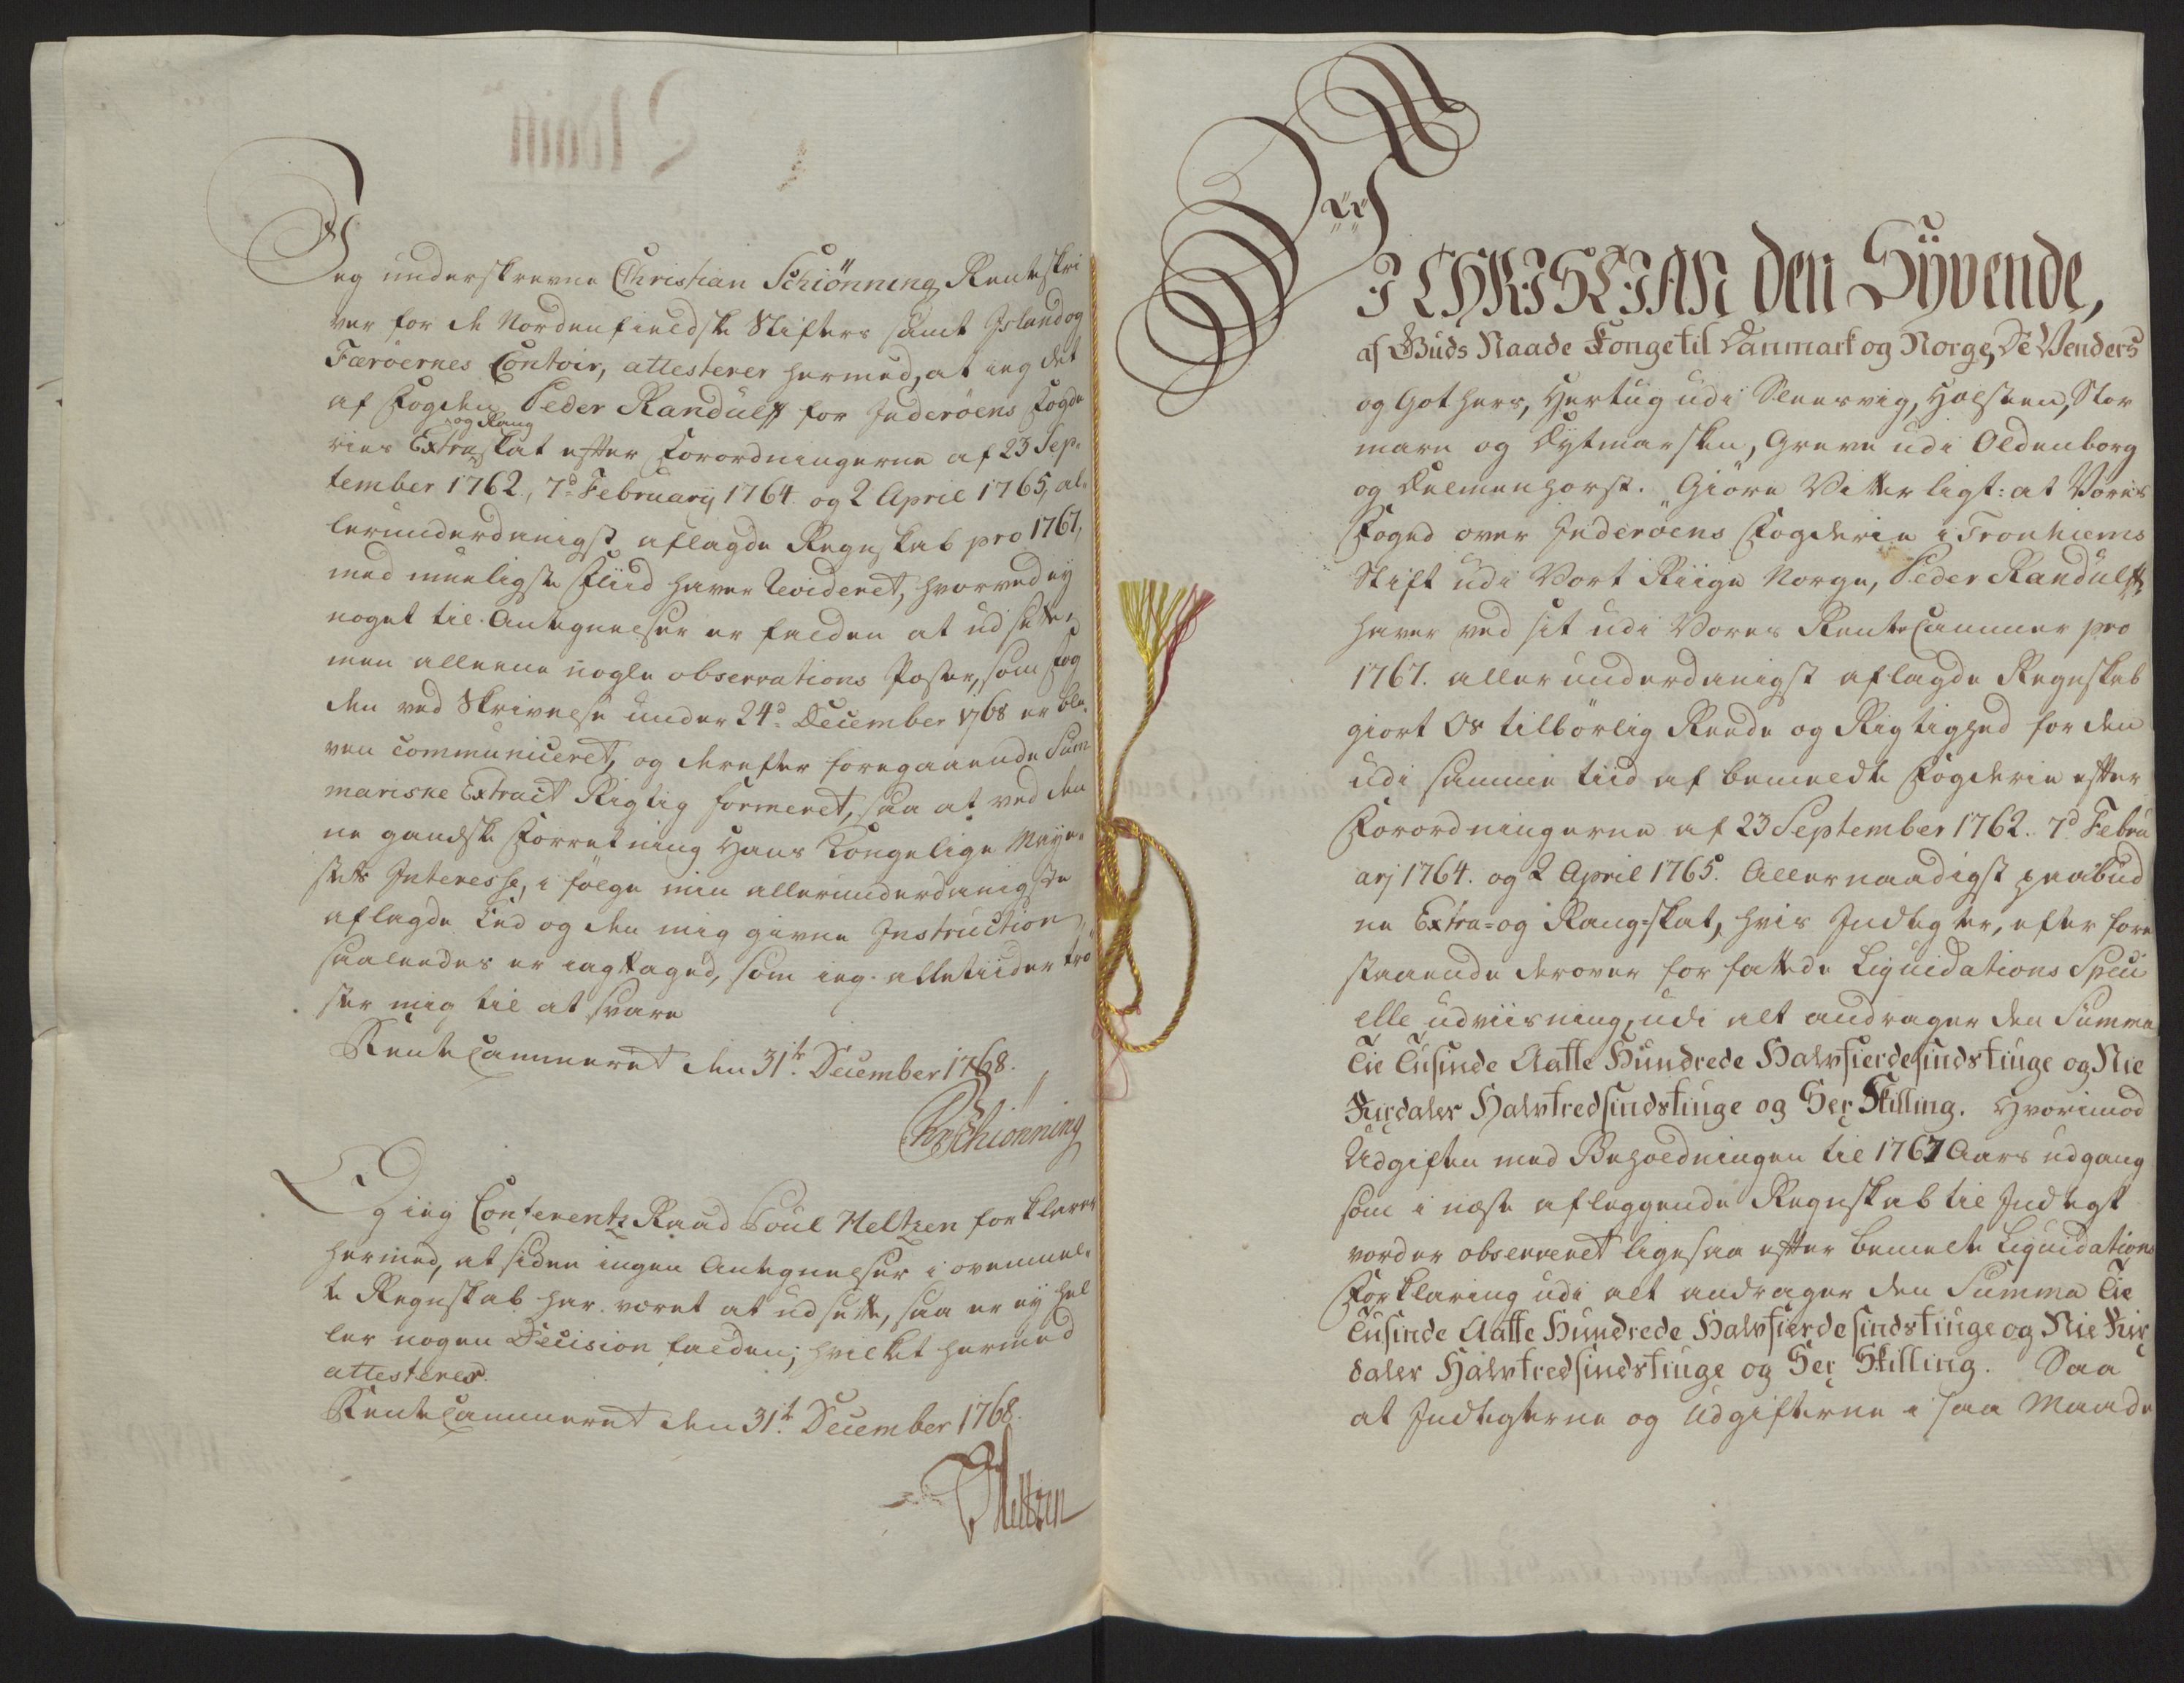 Jeg underskrevne Christian Schiönning Renteskri
ver for de Nordenfieldske Stifters samt Island og
Færöernes Contoir, attesterer hermed, at ieg det
af Fogden Peder Randulff for Inderöens Fogde
og Rang
ries Extra skat efter Forordningerne af 23 Sep-
tember 1762., 7d. Februarij 1764 og 2 April 1765, al-
lerunderdanigst aflagde Regnskab pro 1767,
med mueligste Fliid haver Revideret, hvorved ey
noget til Antegnelser er falden at udsette,
men alleene nogle observations Poster, som Fog
den ved Skrivelse under 24d. December 1768 er ble-
ven communiceret, og derefter foregaaende Sum
mariske Extract Rigtig formeret, saa at ved den
ne gandske Forretning Hans Kongelige Maye-
stets Interesse, i fölge min allerunderdanigste
aflagde Eed og den mig givne Instruction,
saaleedes er iagttaged, som ieg alletiider trö
ster mig til at svare
RenteCammeret den 31te. December 1768.
Schiönning
Og ieg ConferentzRaad Poul Heltzen forklarer
hermed, at siden ingen Antegnelser i ovenmel-
te Regnskab har været at udsette, saa er ey hel
ler nogen Decision falden; hvilket hermed
attesteres.
RenteCammeret den 31t. December 1768.
PHeltzen
Wii
CHRISTIAN den Syvende,
af Guds Naade Konge til Danmark og Norge, De Venders
og Gothers, Hertug udi Slesvig, Holsteen, Stor
marn og Dytmarsken, Greve udi Oldenborg
og Delmenhorst. Giöre Vitterligt: at Vores
Foged over Inderöens Fogderie i Tronhiems
Stift udi Vort Riige Norge, Peder Randulff,
haver ved sit udi Vores RenteCammer pro
1767. allerunderdanigst aflagde Regnskab
giort Os tilbörlig Reede og Rigtighed for den
udi samme tiid af bemeldte Fogderie efter
Forordningerne af 23 September 1762. 7d Febru
arj 1764. og 2 April 1765. Allernaadigst paabud
ne Extra- og Rang-skat, hvis Indtegter, efter fore
staaende derover forfattede Liquidations Speci
elle udviisning, udi alt andrager den Summa
Tie Tusinde Aatte Hundrede Halvfierdesindstiuge og Nie
Rixdaler Halvtredsindstiuge og Sex Skilling. Hvorimod
Udgiften med Beholdningen til 1767 Aars udgang
som i næst afleggende Regnskab til Indtegt
vorder observeret ligesaa efter bemelte Liquidations
Forklaring udi alt andrager den Summa Tie
Tusinde Aatte Hundrede Halvfierdesindstiuge og Nie Rix
daler Halvtredsindstiuge og Sex Skilling. Saa
at Indtegterne og Udgifterne i saa Maade